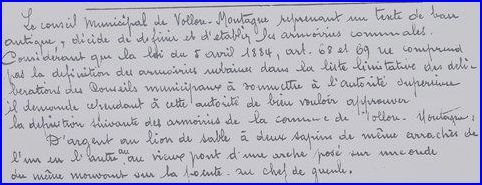 Le conseil Municipal de Vollore-Montagne reprenant un texte de bau
antique, décide de définir et d'établir les armoiries communales.
Considérant que la loi du 5 avril 1884, art. 68 et 69 ne comprend
pas la définition des armoiries urbaines dans la liste limitative des déli-
bérations des Conseils municipaux à soumettre à l'autorité supérieure
il demande cependant à cette autorité de bien vouloir approuver
la définition suivante des armoiries de la commune de Vollore-Montagne:
D'argent au lion de sable à deux sapins de même arrachés de
l'un en l'autre au vieux pont d'une arche posé sur une onde
du même mouvant sur la pointe au chef de gueule.